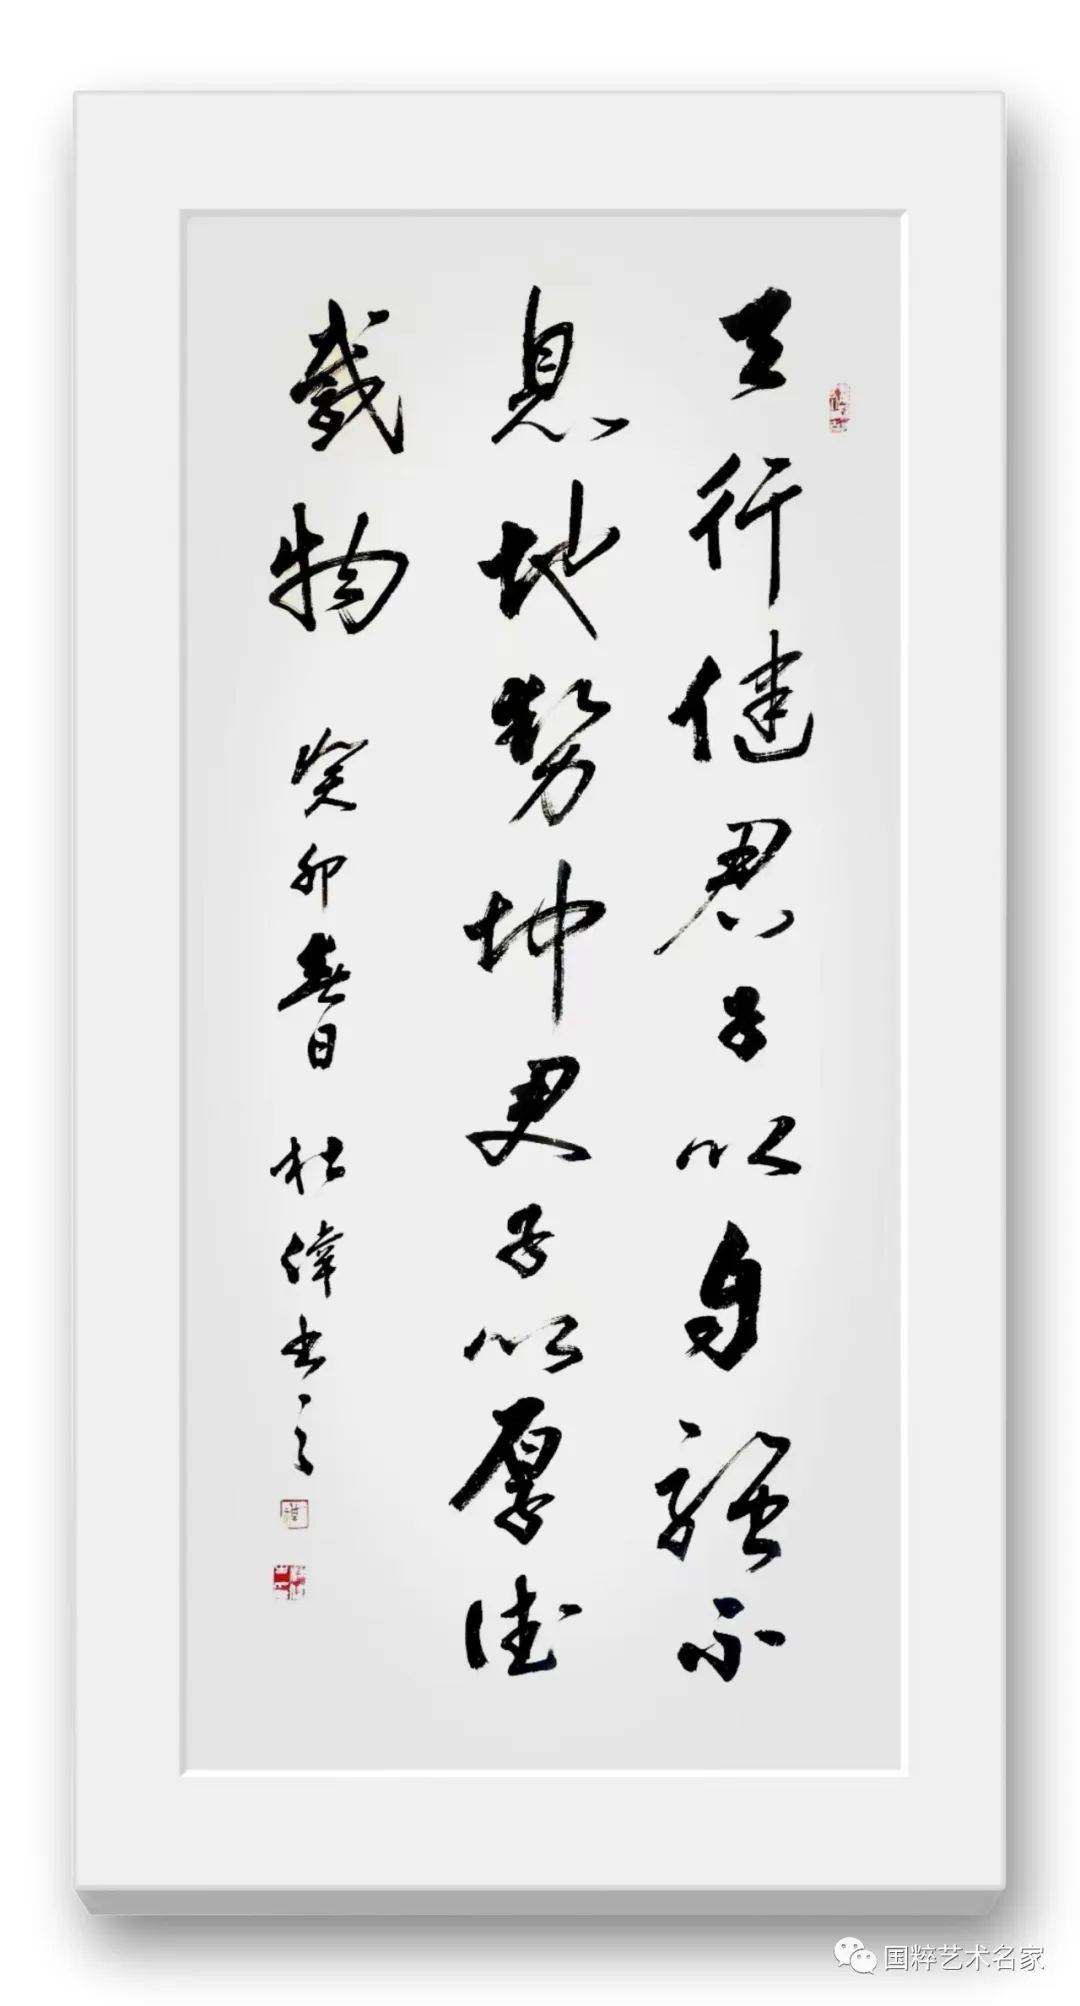 天行健君子以自强不
息地势坤君子以厚德
载物 癸卯春日 杜偉书之
国粹艺术名家